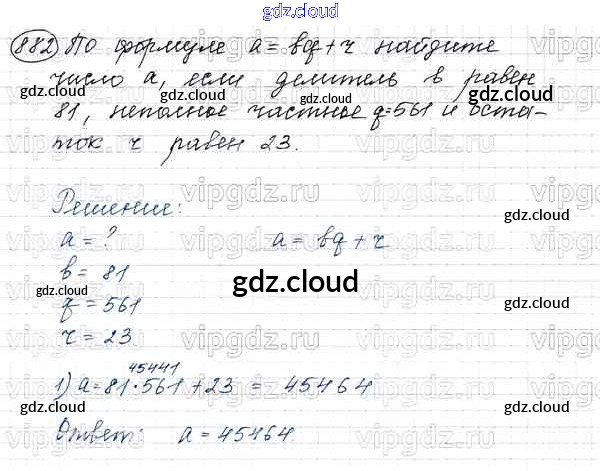 gdz.cloud
882 По формуле a = bq + r найдите
число a, если делитель b равен
81, неполное частное q=561 и оста-
ток r равен 23.
Решение:
a = ? a = bq + r
b = 81
q = 561
r = 23
45441
1) a = 81 · 561 + 23 = 45464
Ответ: a = 45464.
gdz.cloud
gdz.cloud
gdz.cloud
gdz.cloud
gdz.cloud
gdz.cloud
gdz.cloud
gdz.cloud
vipgdz.ru
vipgdz.ru
vipgdz.ru
vipgdz.ru